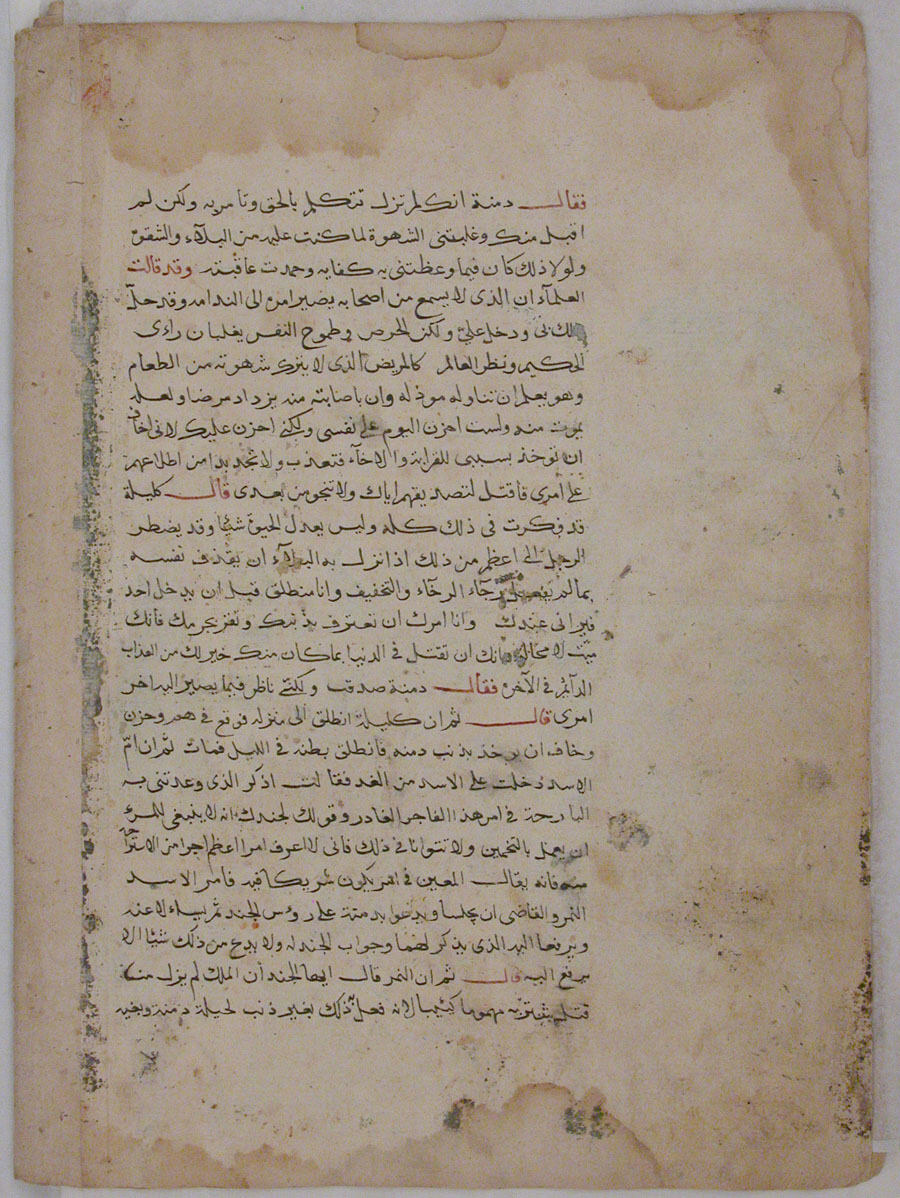 فقال دمنة انك لم تزل تتكلم بالحق وتامر به ولكن لم
اقبل منك وغلبتني الشهوة لما كنت عليه من البلاء والشقق
ولولا ذلك كان فيما وعظتني به كفايه وحمدت عاقبته وقد قالت
العلمآء ان الذي لا يسمع من اصحابه يصير امره الى الندامه وقد حل
ذلك بى ودخل علي ولكن الحرص وطموح النفس يغلبان راى
الحكيم ونظر العالم كالمريض الذى لا يترك شهوته من الطعام
وهو يعلم ان تناوله موذ له وان باصابته منه يزداد مرضا ولعله
يموت منه ولست احزن اليوم على نفسى ولكني احزن عليك لانى اخاف
ان توخذ بسببى للقرابة والاخآء فتعذب ولا تجد بدا من اطلاعهم
على امرى فاقتل لتصديقهم اياك ولا تنجو من بعدى قال كليلة
قد فكرت فى ذلك كله وليس يعدل الحيوة شيئا وقد يضطر
الرجل الى اعظم من ذلك اذا نزل به البلاء ان يقذف نفسه
بما لم يفعل رجآء الرخآء والتخفيف وانا منطلق قبل ان يدخل احد
فيرانى عندك وانا امرك ان تعترف بذنبك وتقر بجرمك فانك
ميت لا محالة وانك ان تقتل فى الدنيا بما كان منك خير لك من العذاب
الدآئم فى الآخرة فقال دمنة صدقت ولكني ناظر فيما يصير اليه اخر
امرى قال ثم ان كليلة انطلق الى منزله فوقع فى هم وحزن
وخاف ان يوخذ بذنب دمنه فانطلق بطنه فى الليل فمات ثم ان ام
الاسد دخلت على الاسد من الغد فقالت اذكر الذى وعدتنى به
البارحة فى امر هذا الفاجر الغادر وقولك لجندك انه لا ينبغى للمرء
ان يعمل بالتخمين ولا تتوانا فى ذلك فانى لا اعرف امرا اعظم اجرا من الاستراحة
منه فانه يقال المعين فى امر يكون شريكا فيه فامر الاسد
النمر والقاضى ان يجلسا ويدعوا بدمنة على روس الجند ثم يسالا عنه
ويرفعا اليه الذى يذكر لهما وجواب الجند له ولا يدع من ذلك شيئا الا
يرفع اليه قال ثم ان النمر قال ايها الجند ان الملك لم يزل منذ
قتل شتربه مهموما كئيبا لانه فعل ذلك بغير ذنب لحيلة دمنة وبغيه